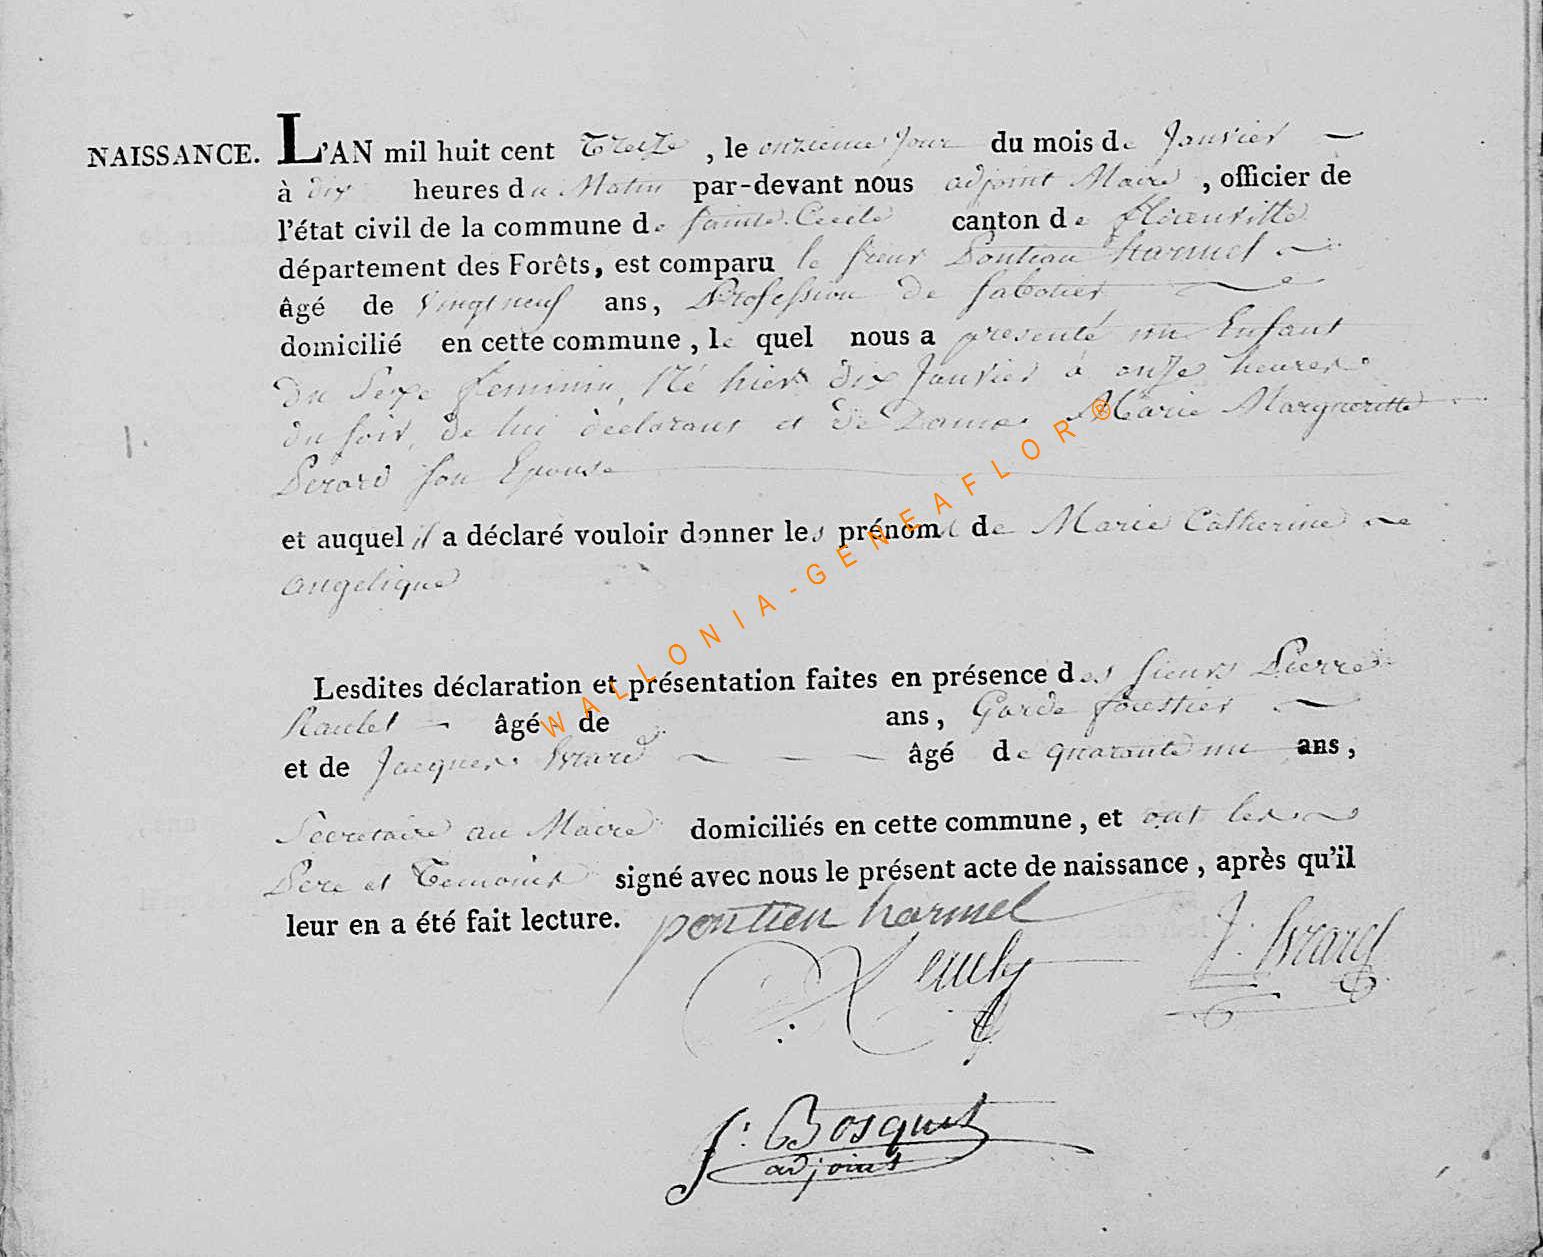 NAISSANCE. L'AN mil huit cent Treize, le onzieme jour du mois de Janvier
à dix heures du Matin par-devant nous adjoint Maire, officier de
l'état civil de la commune de Sainte-Cecile canton de florenville
département des Forêts, est comparu le Sieur Pontian harmel
âgé de vingt neuf ans, Profession de Sabotier
domicilié en cette commune, le quel nous a presenté un Enfant
du Sexe feminin, Né hier dix Janvier à onze heures
du soir, de lui déclarant et de Dame Marie Margueritte
Perard son Epouse
et auquel il a déclaré vouloir donner les prénoms de Marie Catherine
angelique
Lesdites déclaration et présentation faites en présence des sieurs Pierre
âgé de ans, Garde forestier
et de Jacques Evrard âgé de quarante un ans,
Secretaire au Maire domiciliés en cette commune, et ont les
Pere et Temoins signé avec nous le présent acte de naissance, après qu'il
leur en a été fait lecture. pontien harmel
J. Evrard
J: Bosquet
adjoint
WALLONIA-GENEAFLOR®